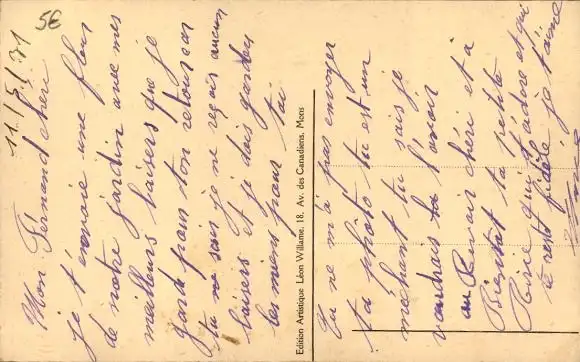 5€
11/5/31
Mon Fernand chéri
je t'envoie une fleur
de notre jardin avec mes
meilleurs baisers que je
garde pour ton retour car
tu ne sais je ne reçois aucun
baisers et je dois garder
les miens pour toi
Edition Artistique Léon Willame, 18, Av. des Canadiens, Mons
Tu ne m'a pas envoyer
ta photo tu est un
méchant tu sais je
voudrais l'avoir
au Revoir chéri et à
Bientot ta petite
qui t'adore et qui
te rest fidèle je t'aime